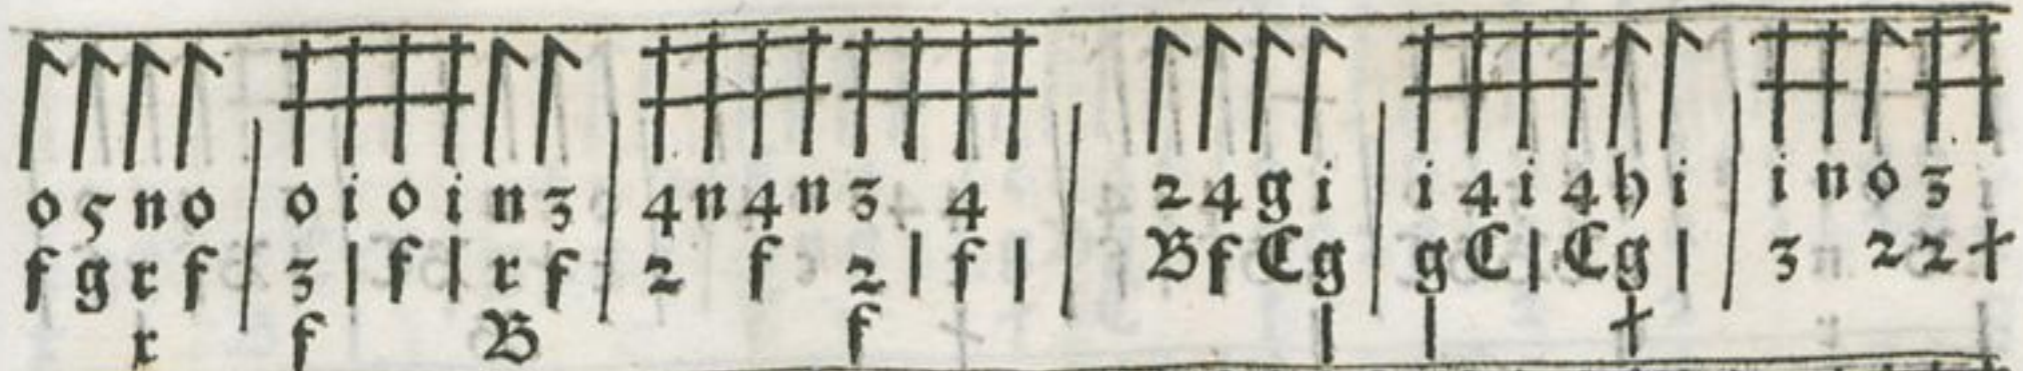 o 5 n o | o i o i n 3 | 4 n 4 n 3 4 | 2 4 g i | i 4 i 4 h i | i n o 3
f g r f | 3 | f | r f | 2 f 2 | f | | B f C g | g C | C g | | 3 2 2 +
r f B f | | +